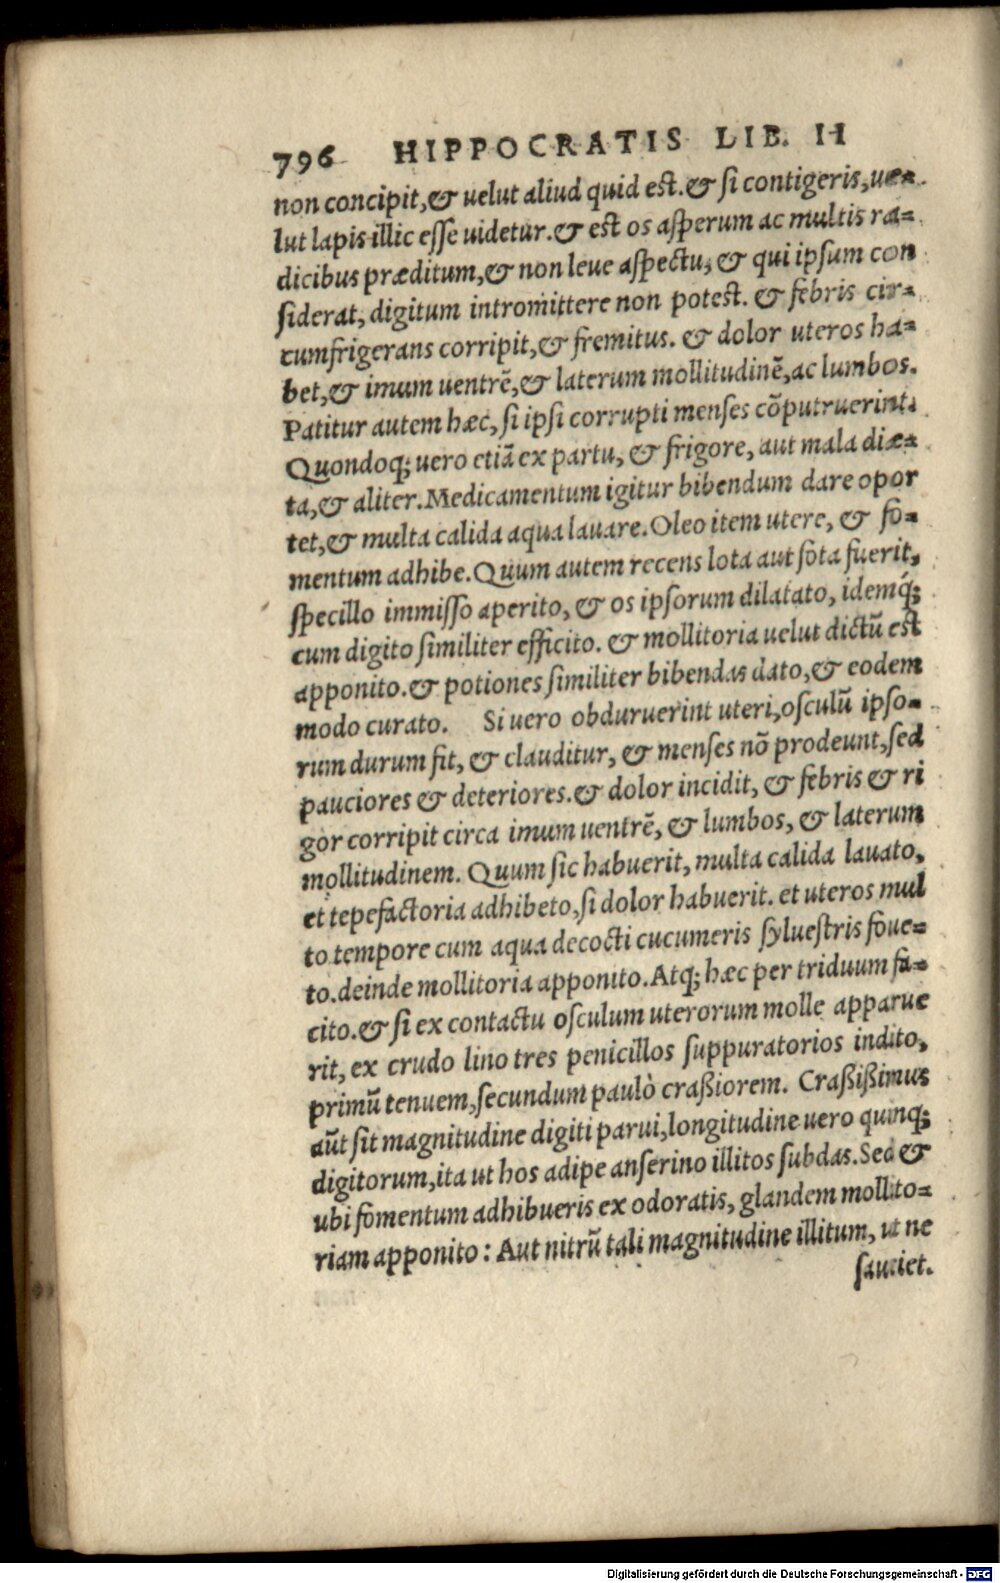 796 HIPPOCRATIS LIB. II
non concipit,& uelut aliud quid est.& si contigeris,ue=
lut lapis illic esse uidetur.& est os asperum ac multis ra=
dicibus præditum,& non leue aspectu,& qui ipsum con
siderat, digitum intromittere non potest. & febris cir=
cumfrigerans corripit,& fremitus. & dolor uteros ha=
bet,& imum uentrē,& laterum mollitudinē,ac lumbos.
Patitur autem hæc, si ipsi corrupti menses cōputruerint.
Quondoq; uero etiā ex partu, & frigore, aut mala diæ=
ta,& aliter.Medicamentum igitur bibendum dare opor
tet,& multa calida aqua lauare.Oleo item utere, & fo=
mentum adhibe.Quum autem recens lota aut fota fuerit,
specillo immisso aperito, & os ipsorum dilatato, idemq́;
cum digito similiter efficito. & mollitoria uelut dictū est
apponito.& potiones similiter bibendas dato,& eodem
modo curato. Si uero obduruerint uteri,osculū ipso=
rum durum fit, & clauditur, & menses nō prodeunt,sed
pauciores & deteriores.& dolor incidit, & febris & ri
gor corripit circa imum uentrē, & lumbos, & laterum
mollitudinem. Quum sic habuerit, multa calida lauato,
et tepefactoria adhibeto,si dolor habuerit. et uteros mul
to tempore cum aqua decocti cucumeris syluestris foue=
to.deinde mollitoria apponito.Atq; hæc per triduum fa=
cito.& si ex contactu osculum uterorum molle apparue
rit, ex crudo lino tres penicillos suppuratorios indito,
primū tenuem,secundum paulò craßiorem. Craßißimus
aūt sit magnitudine digiti parui,longitudine uero quinq;
digitorum,ita ut hos adipe anserino illitos subdas.Sed &
ubi fomentum adhibueris ex odoratis, glandem mollito=
riam apponito : Aut nitrū tali magnitudine illitum, ut ne
sauciet.
Digitalisierung gefördert durch die Deutsche Forschungsgemeinschaft - DFG